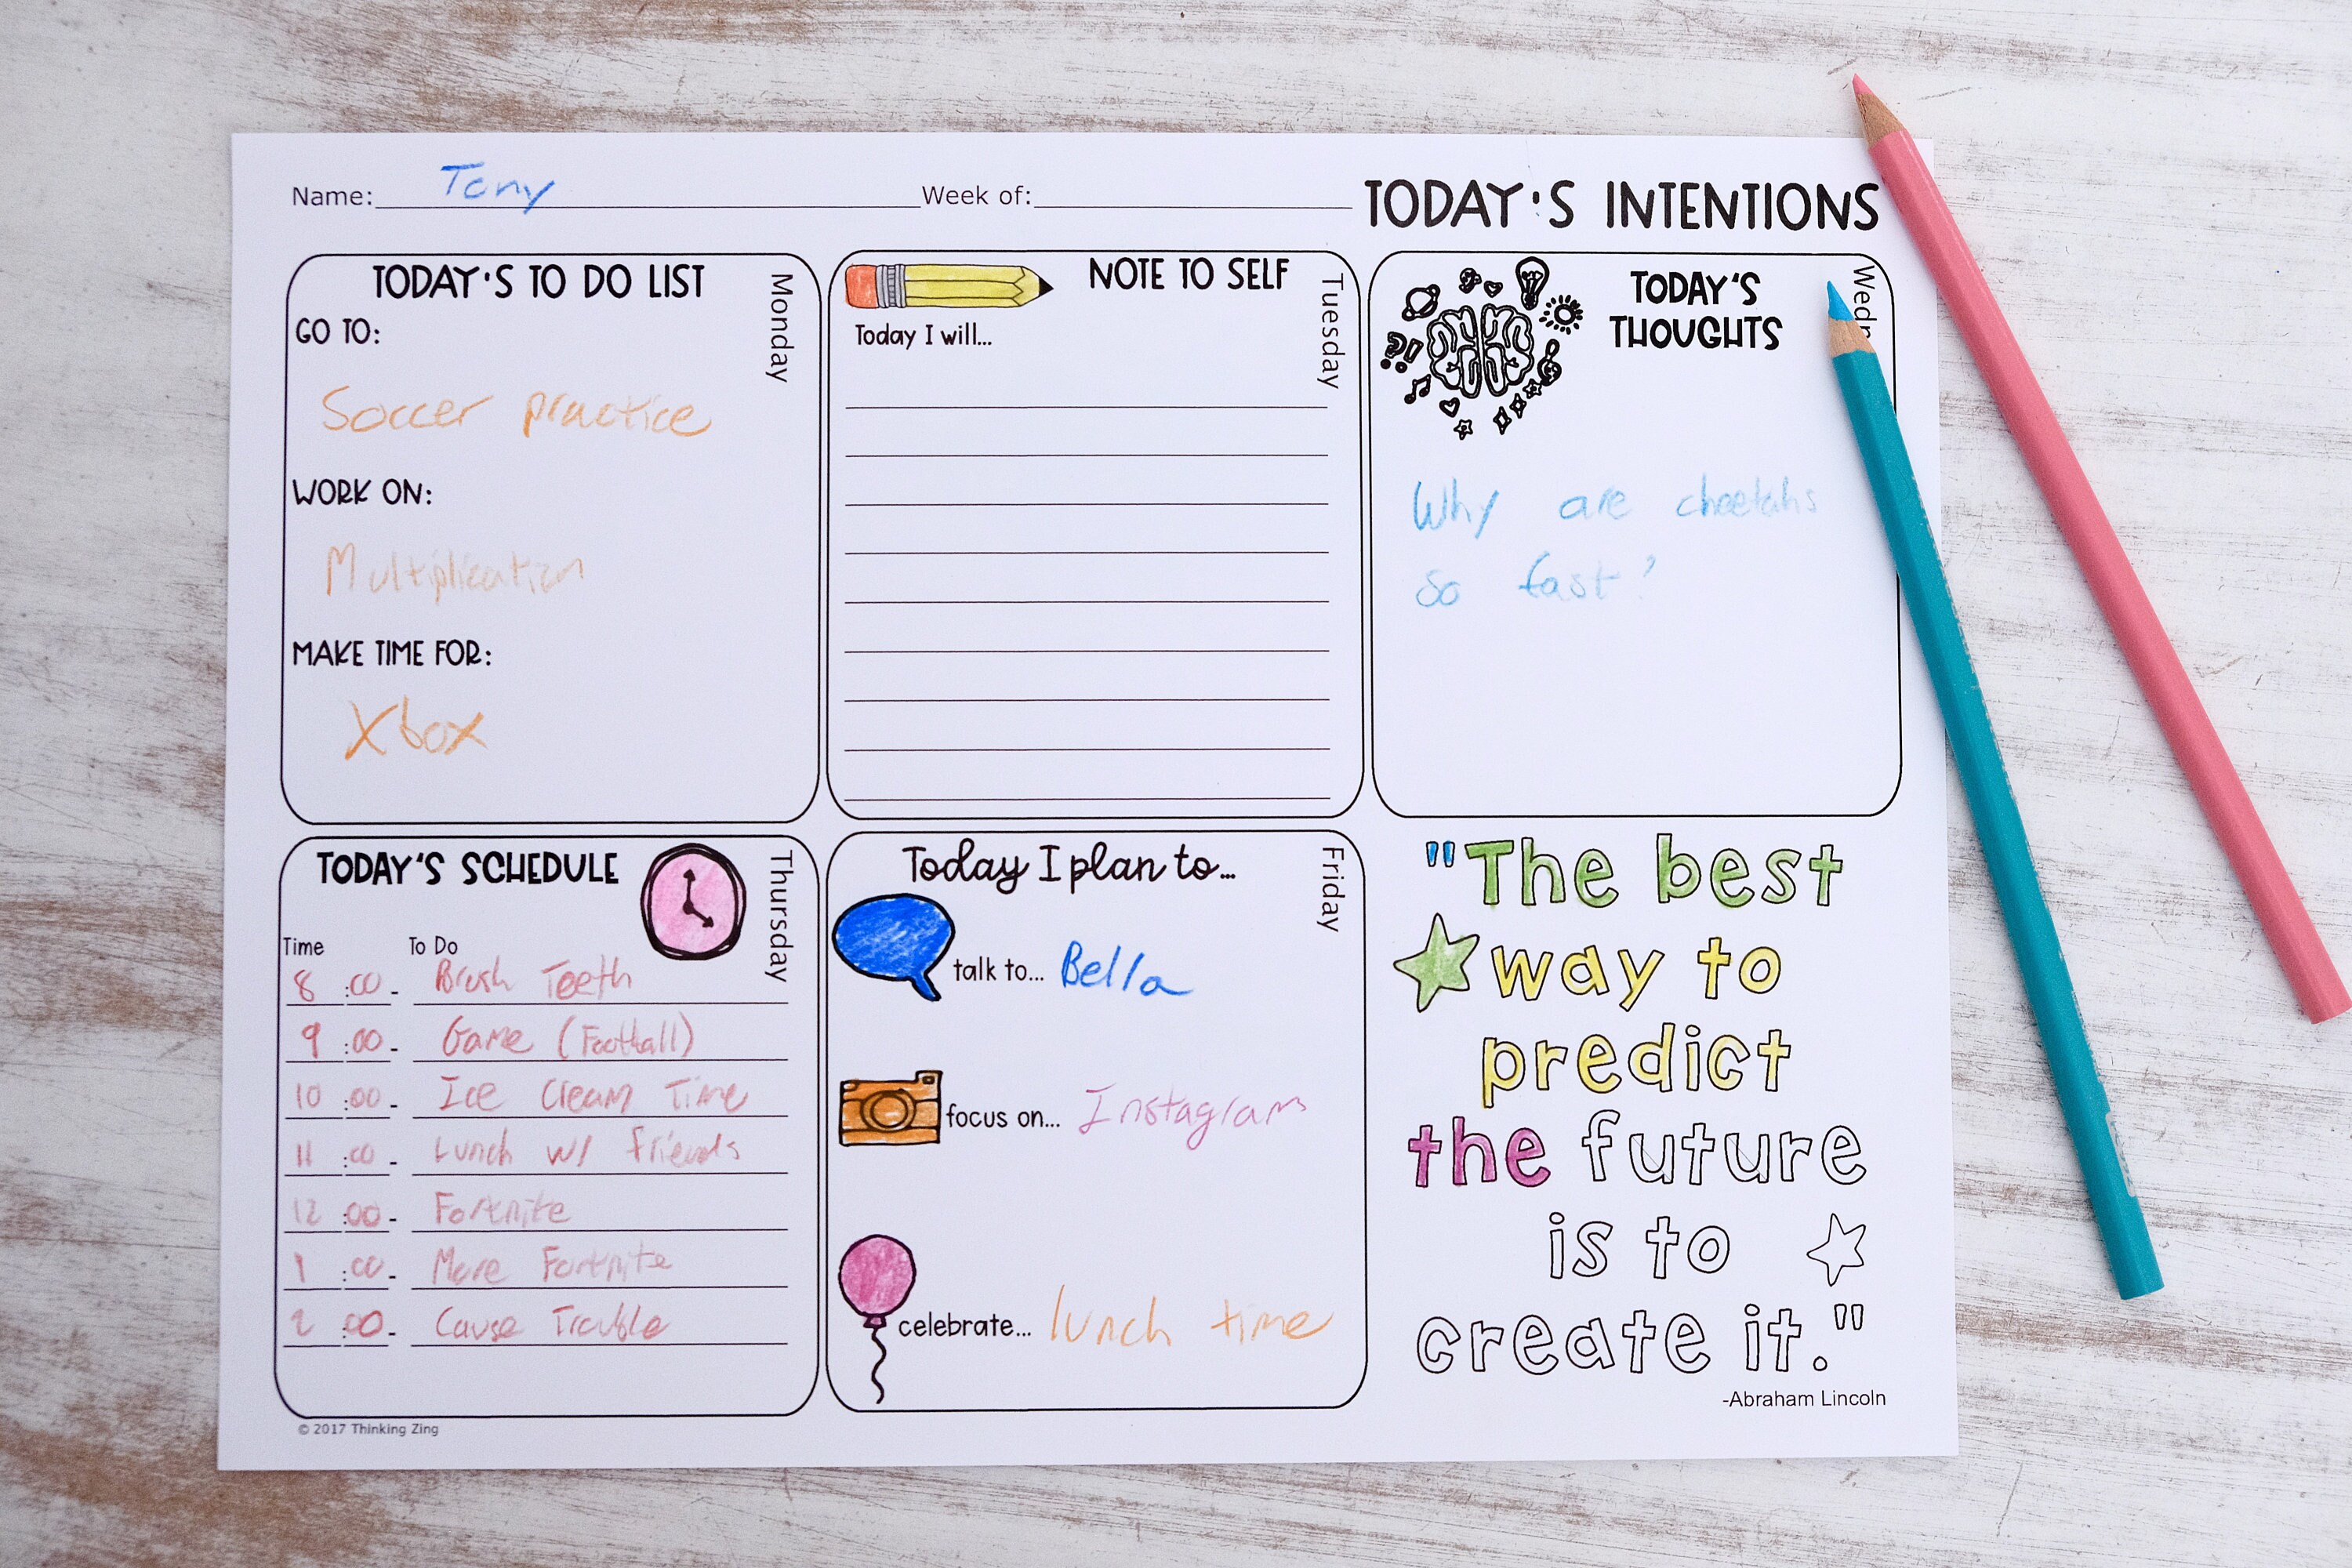 Name: Tony Week of: TODAY'S INTENTIONS
Monday
TODAY'S TO DO LIST
GO TO:
Soccer practice
WORK ON:
Multiplication
MAKE TIME FOR:
Xbox
Tuesday
NOTE TO SELF
Today I will...
Wedn
TODAY'S
THOUGHTS
?!
Why are cheetahs
so fast?
Thursday
TODAY'S SCHEDULE
Time To Do
8 :00 - Brush Teeth
9 :00 - Game (Football)
10 :00 - Ice Cream Time
11 :00 - Lunch w/ friends
12 :00 - Fortnite
1 :00 - More Fortnite
2 :00 - Cause Trouble
Friday
Today I plan to...
talk to... Bella
focus on... Instagram
celebrate... lunch time
"The best
way to
predict
the future
is to
create it."
-Abraham Lincoln
© 2017 Thinking Zing